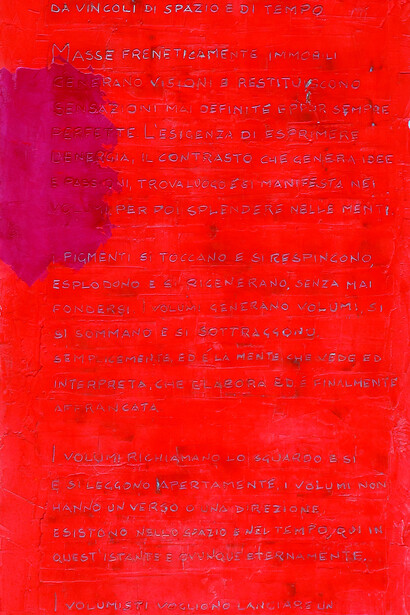 DA VINCOLI DI SPAZIO E DI TEMPO
MASSE FRENETICAMENTE IMMOBILI
GENERANO VISIONI E RESTITUISCONO
SENSAZIONI MAI DEFINITE EPPUR SEMPRE
PERFETTE L'ESIGENZA DI ESPRIMERE
L'ENERGIA, IL CONTRASTO CHE GENERA IDEE
E PASSIONI, TROVA LUOGO E SI MANIFESTA NEI
VOLUMI, PER POI SPLENDERE NELLE MENTI.
I PIGMENTI SI TOCCANO E SI RESPINGONO,
ESPLODONO E SI RIGENERANO, SENZA MAI
FONDERSI. I VOLUMI GENERANO VOLUMI, SI
SI SOMMANO E SI SOTTRAGGONO
SEMPLICEMENTE, ED È LA MENTE, CHE VEDE ED
INTERPRETA, CHE ELABORA ED È FINALMENTE
AFFRANCATA
I VOLUMI RICHIAMANO LO SGUARDO E SI
E SI LEGGONO APERTAMENTE, I VOLUMI NON
HANNO UN VERSO O UNA DIREZIONE
ESISTONO NELLO SPAZIO E NEL TEMPO, ORSI IN
QUEST'ISTANTE E OVUNQUE ETERNAMENTE.
I VOLUMISTI VOGLIONO LANCIARE UN